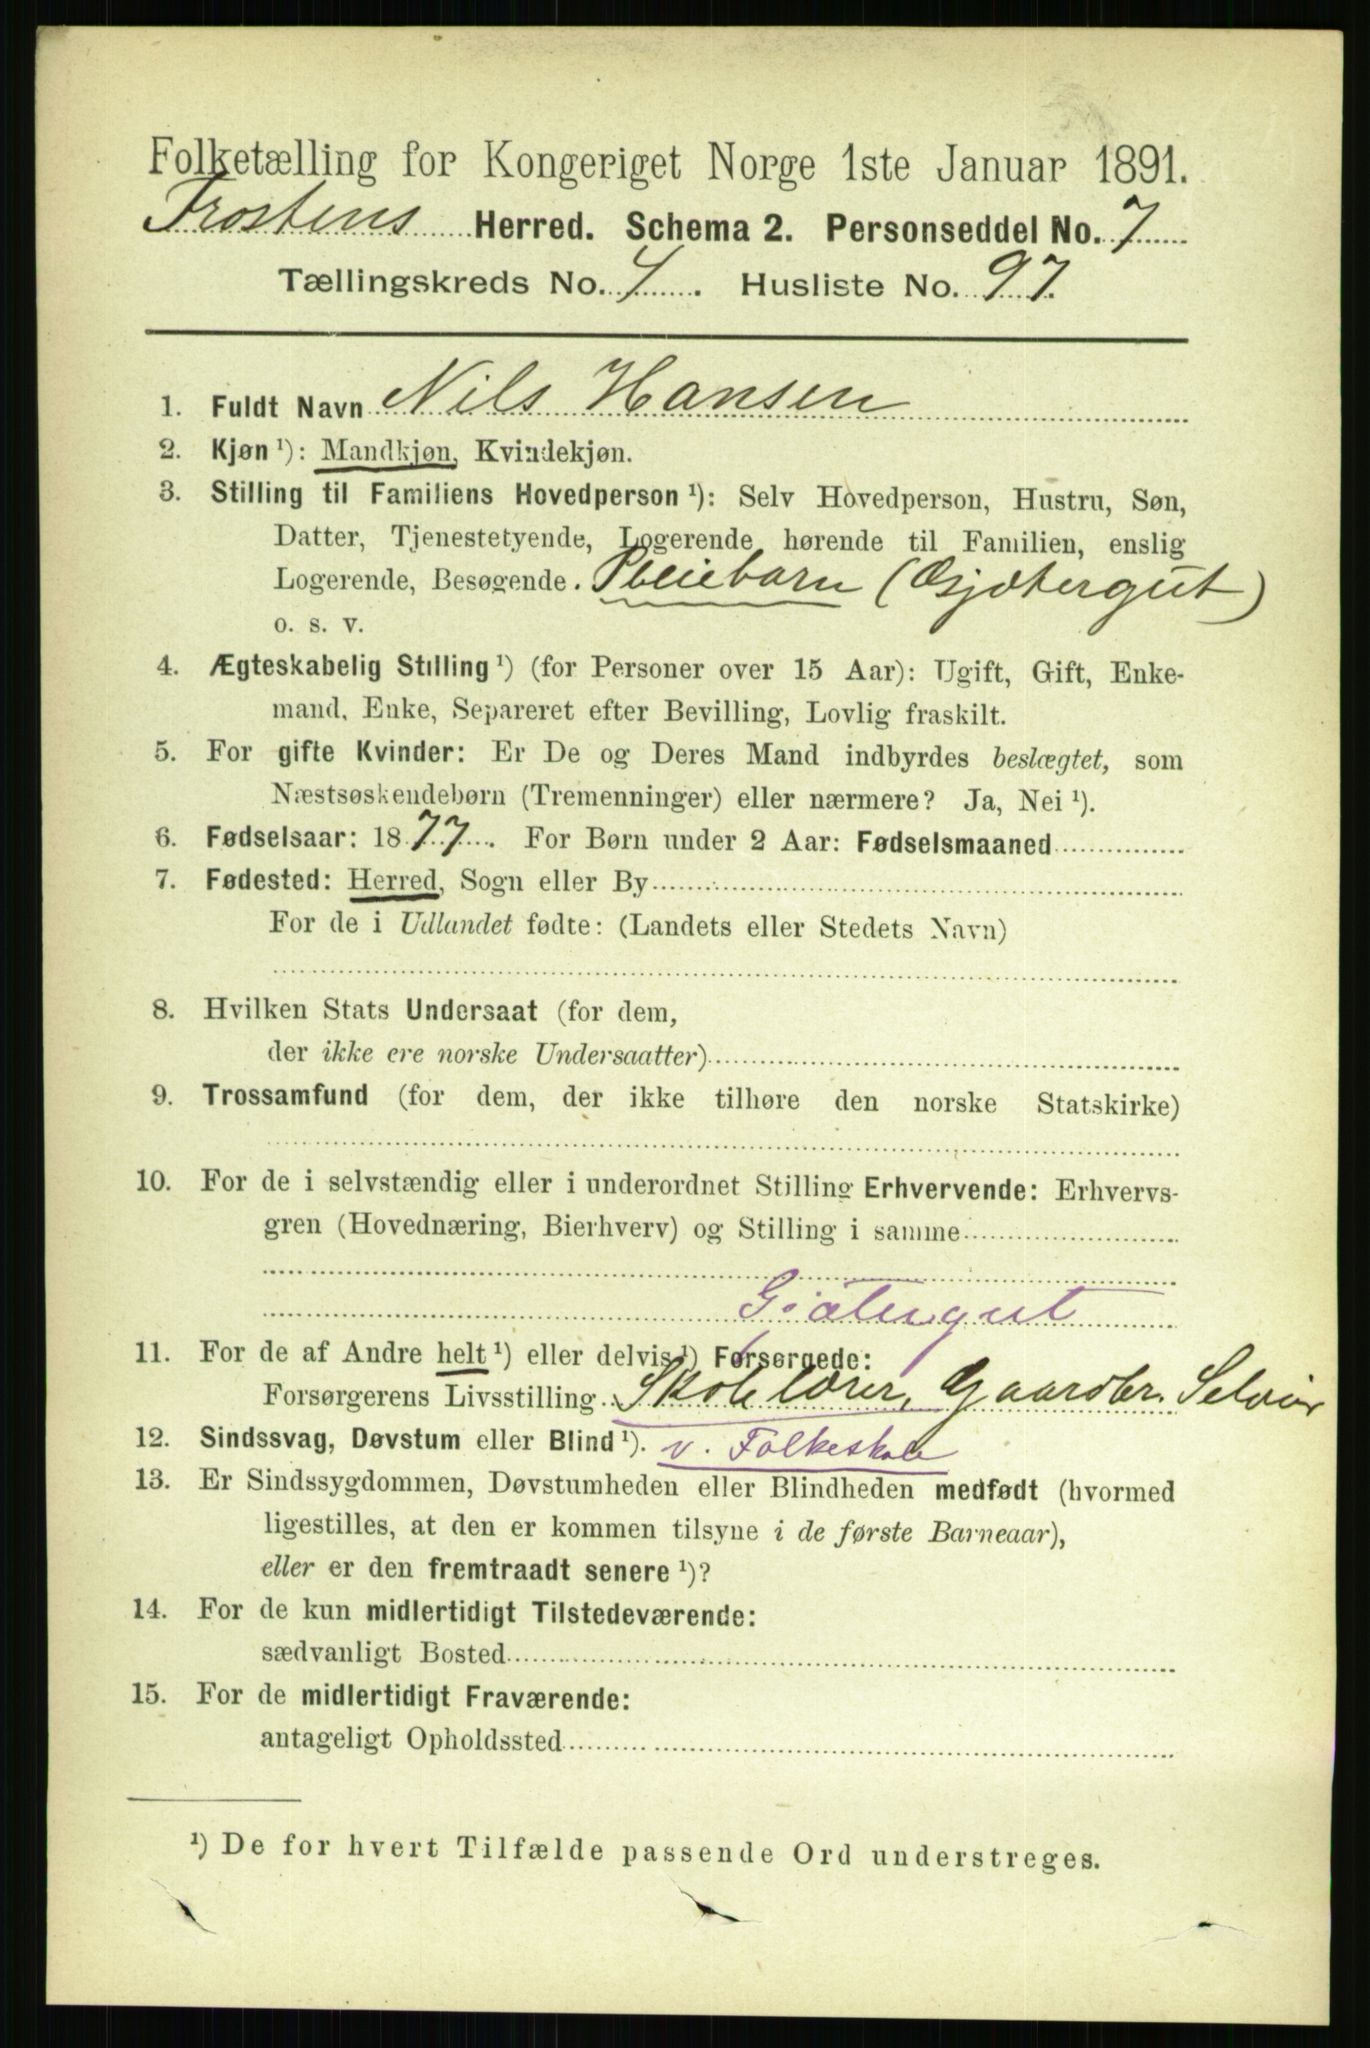 Folketælling for Kongeriget Norge 1ste Januar 1891.
Frostens Herred. Schema 2. Personseddel No. 7
Tællingskreds No. 4. Husliste No. 97.
1. Fuldt Navn Nils Hansen
2. Kjøn ¹): Mandkjøn, Kvindekjøn.
3. Stilling til Familiens Hovedperson ¹): Selv Hovedperson, Hustru, Søn,
Datter, Tjenestetyende, Logerende hørende til Familien, enslig
Logerende, Besøgende. Pleiebarn (Gjætergut)
o. s. v.
4. Ægteskabelig Stilling ¹) (for Personer over 15 Aar): Ugift, Gift, Enke-
mand, Enke, Separeret efter Bevilling, Lovlig fraskilt.
5. For gifte Kvinder: Er De og Deres Mand indbyrdes beslægtet, som
Næstsøskendebørn (Tremenninger) eller nærmere? Ja, Nei ¹).
6. Fødselsaar: 1877. For Børn under 2 Aar: Fødselsmaaned
7. Fødested: Herred, Sogn eller By
For de i Udlandet fødte: (Landets eller Stedets Navn)
8. Hvilken Stats Undersaat (for dem,
der ikke ere norske Undersaatter)
9. Trossamfund (for dem, der ikke tilhøre den norske Statskirke)
10. For de i selvstændig eller i underordnet Stilling Erhvervende: Erhvervs-
gren (Hovednæring, Bierhverv) og Stilling i samme
Gjætergut
11. For de af Andre helt ¹) eller delvis ¹) Forsørgede:
Forsørgerens Livsstilling Skolelærer, Gaardbr. Seleier
12. Sindssvag, Døvstum eller Blind ¹). v. Folkeskole
13. Er Sindssygdommen, Døvstumheden eller Blindheden medfødt (hvormed
ligestilles, at den er kommen tilsyne i de første Barneaar),
eller er den fremtraadt senere ¹)?
14. For de kun midlertidigt Tilstedeværende:
sædvanligt Bosted
15. For de midlertidigt Fraværende:
antageligt Opholdssted
¹) De for hvert Tilfælde passende Ord understreges.